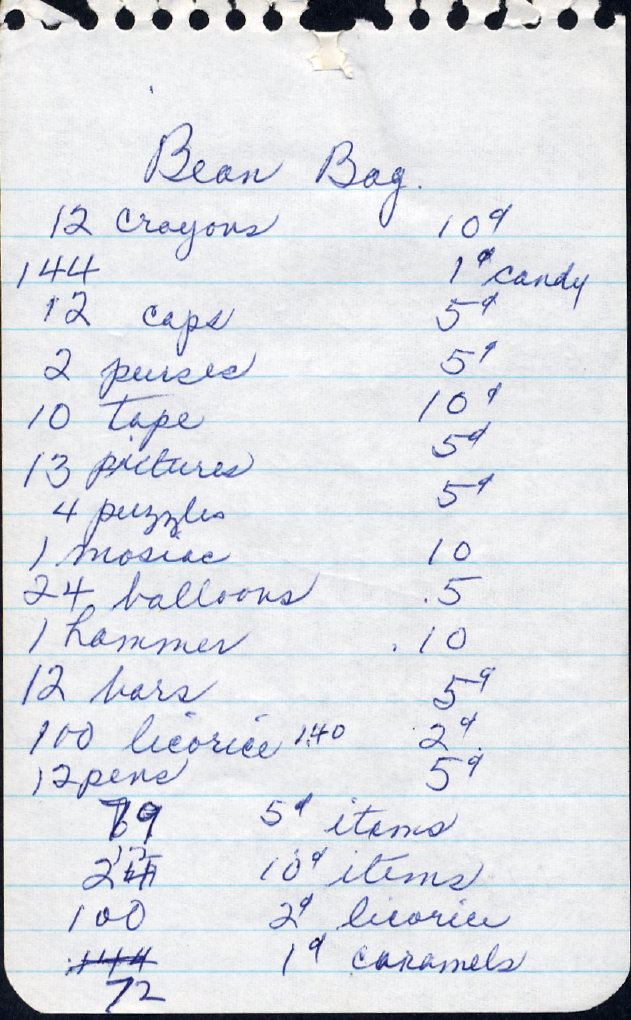 Bean Bag.
12 crayons 10¢
144 1¢ candy
12 caps 5¢
2 purses 5¢
10 tape 10¢
13 pictures 5¢
4 puzzles 5¢
1 mosiac 10
24 balloons .5
1 hammer .10
12 bars 5¢
100 licorice 1.40 2¢
12 pens 5¢
79 5¢ items
2 10¢ items
100 2¢ licorice
144 1¢ caramels
72